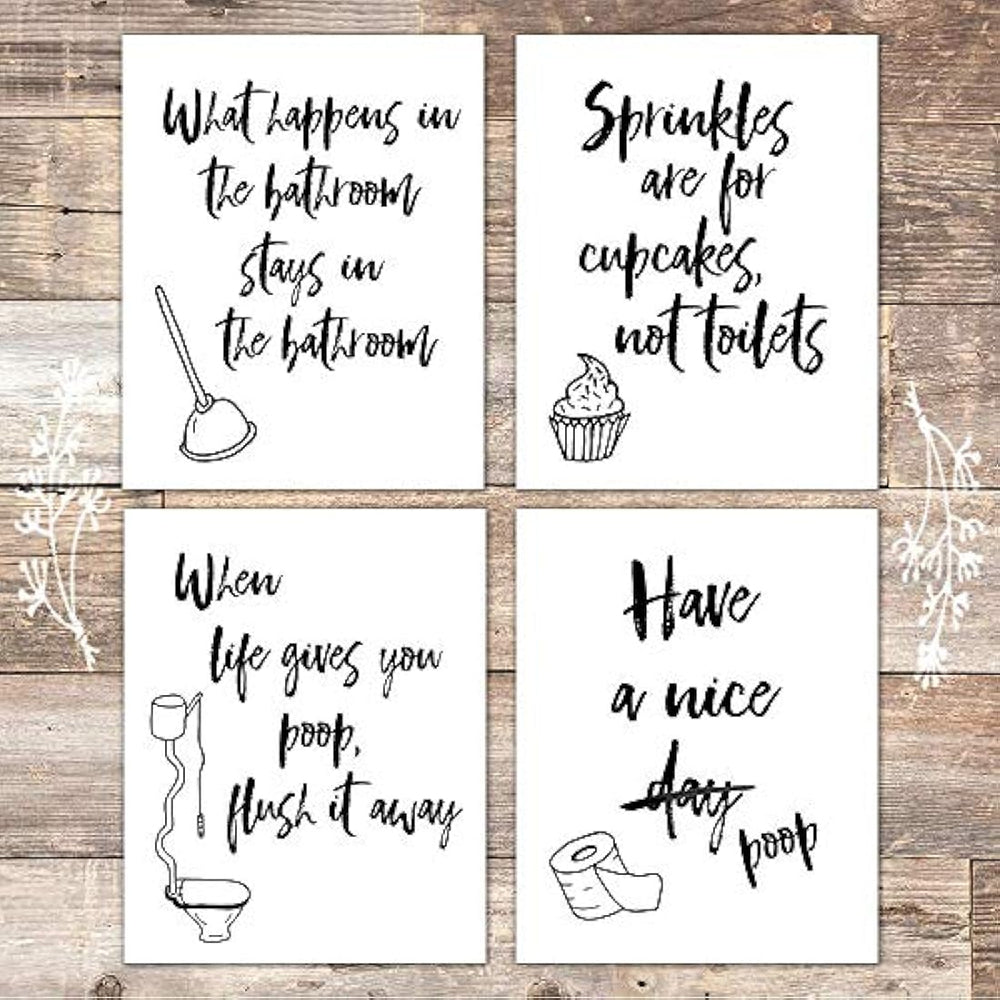 What happens in
the bathroom
stays in
the bathroom
Sprinkles
are for
cupcakes,
not toilets
When
life gives you
poop,
flush it away
Have
a nice
day
poop